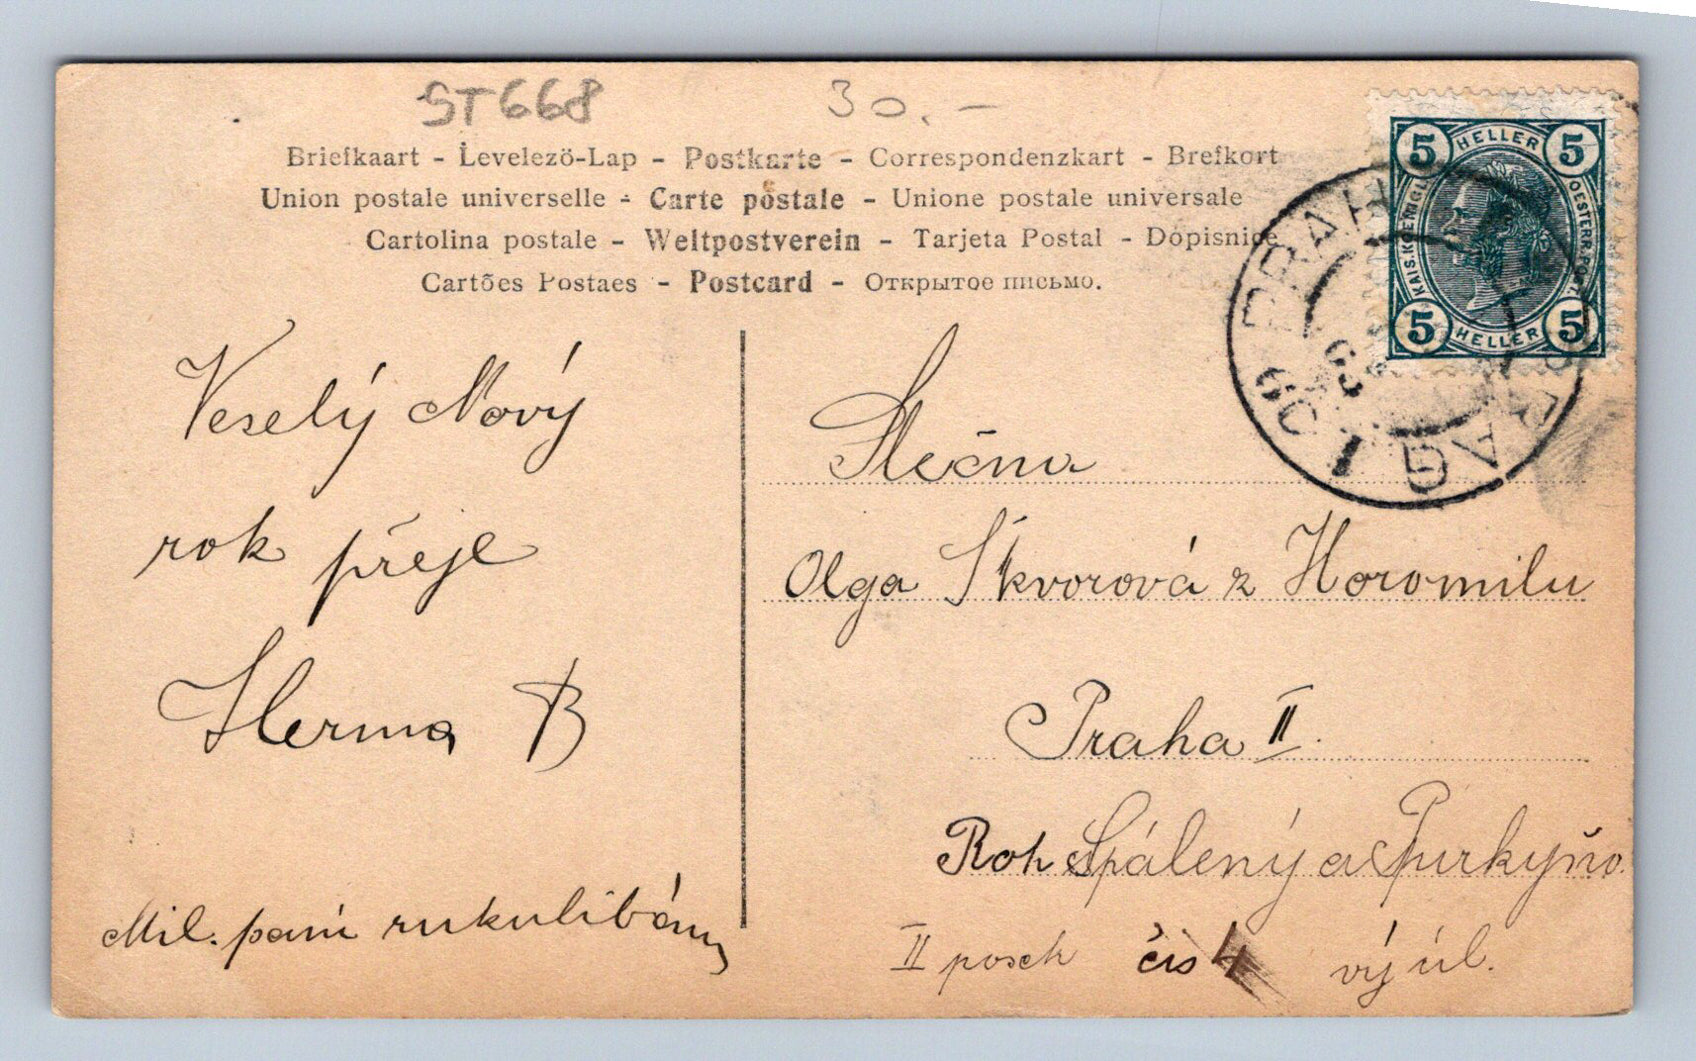 ST668 30.-
Briefkaart - Levelezö-Lap - Postkarte - Correspondenzkart - Brefkort
Union postale universelle - Carte postale - Unione postale universale
Cartolina postale - Weltpostverein - Tarjeta Postal - Dopisnice
Cartões Postaes - Postcard - Открытое письмо.
5 HELLER 5
KAIS. KOENIGL. OESTERR. POST.
5 HELLER 5
PRAG 1
Veselý Nový
rok přeje
Herma B
Mil. paní rukulíbám
Slečna
Olga Škvorová z Horomilu
Praha II.
Roh Spálený a Purkyňo
II posch čís 4 vý úl.